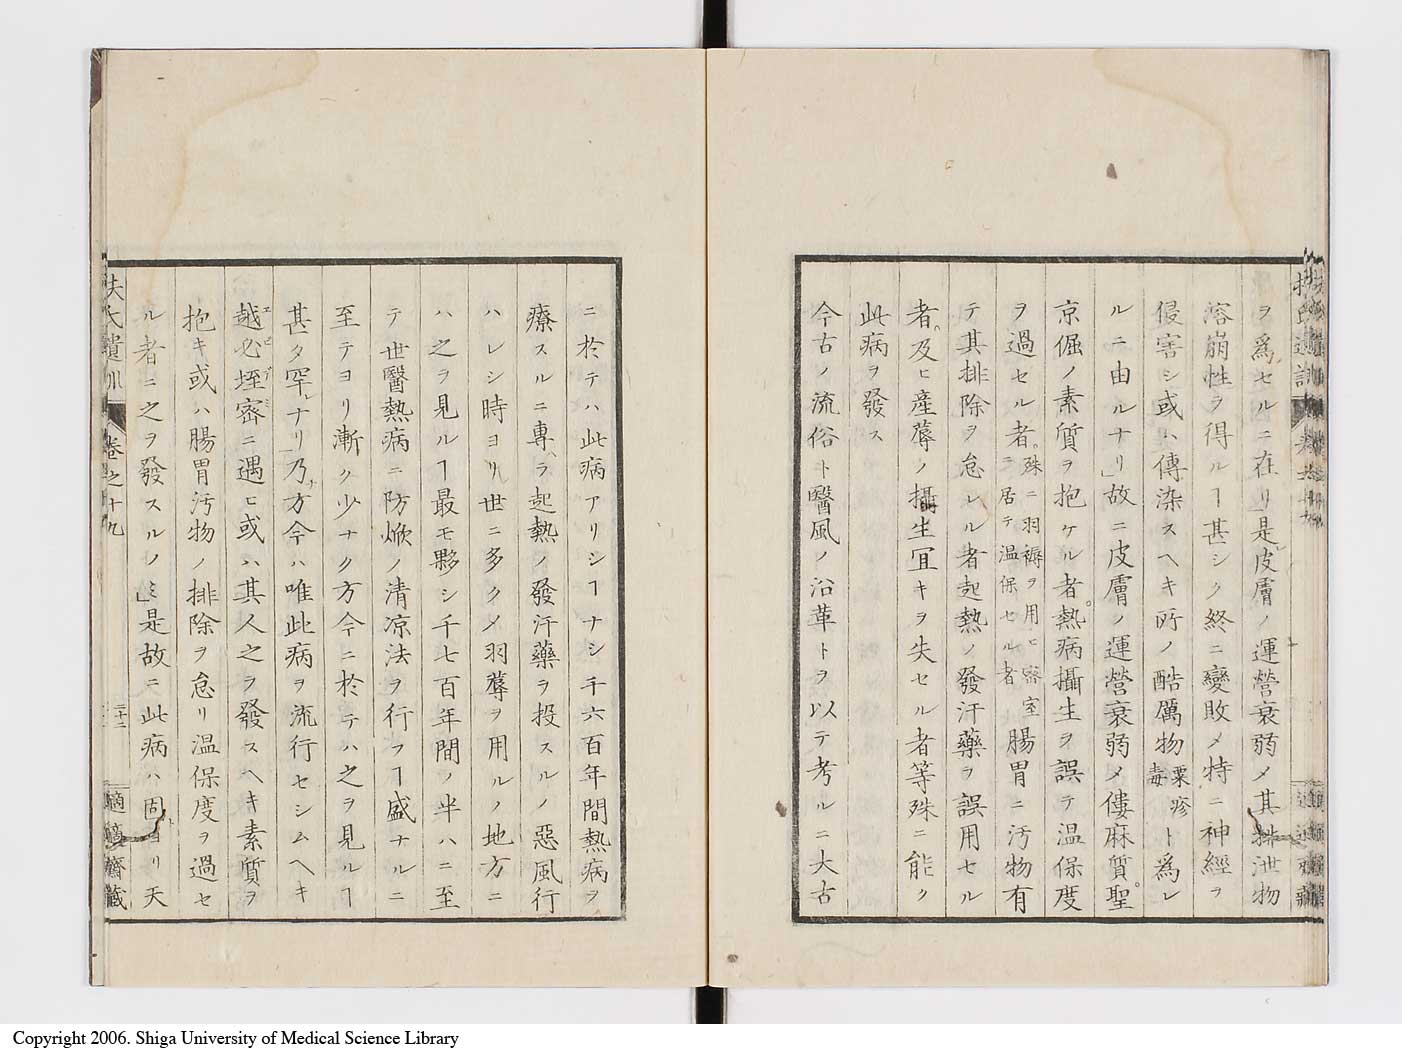 ヲ爲セルニ在リ」是レ皮膚ノ運營衰弱〆其排泄物
溶崩性ヲ得ルヿ甚シク終ニ變敗〆特ニ神經ヲ
侵害シ或ハ傳染スヘキ所ノ酷厲物粟疹毒ト為レ
ルニ由ルナリ」故ニ皮膚ノ運營衰弱〆僂麻質。聖
京倔ノ素質ヲ抱ケル者。熱病攝生ヲ誤テ温保度
ヲ過セル者。殊ニ羽褥ヲ用ヒ密室ニ居テ温保セル者腸胃ニ汚物有
テ其排除ヲ怠レル者起熱ノ發汗藥ヲ誤用セル
者。及ヒ産蓐ノ攝生宜キヲ失セル者等殊ニ能ク
此病ヲ發ス
今古ノ流俗ト醫風ノ沿革トヲ以テ考ルニ大古
ニ於テハ此病アリシヿナシ千六百年間熱病ヲ
療スルニ專ラ起熱ノ發汗藥ヲ投スルノ惡風行
ハレシ時ヨリ世ニ多ク〆羽蓐ヲ用ルノ地方ニ
ハ之ヲ見ルヿ最モ夥シ千七百年間ノ半ハニ至
テ世醫熱病ニ防焮ノ清凉法ヲ行フヿ盛ナルニ
至テヨリ漸ク少ナク方今ニ於テハ之ヲ見ルヿ
甚タ罕レナリ」乃チ方今ハ唯此病ヲ流行セシムヘキ
越必垤密ニ遇ヒ或ハ其人之ヲ發スヘキ素質ヲ
エピデミ
抱キ或ハ腸胃汚物ノ排除ヲ怠リ温保度ヲ過セ
ル者ニ之ヲ發スルノミ」是故ニ此病ハ固ヨリ天
扶氏遺訓 卷之十九 二十二 適々齋藏